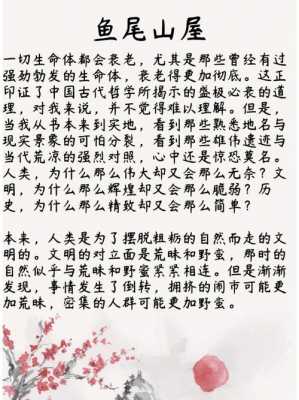 鱼尾山屋
一切生命体都会衰老，尤其是那些曾经有过
强劲勃发的生命体，衰老得更加彻底。这正
印证了中国古代哲学所揭示的盛极必衰的道
理，对我来说，并不觉得难以理解。但是，
当我从书本来到实地，看到那些熟悉地名与
现实景象的可怕分裂，看到那些雄伟遗迹与
当代荒凉的强烈对照，心中还是惊恐莫名。
人类，为什么那么伟大却又会那么无奈？文
明，为什么那么辉煌却又会那么脆弱？历
史，为什么那么精致却又会那么简单？
本来，人类是为了摆脱粗粝的自然而走的文
明的。文明的对立面是荒昧和野蛮，那时的
自然似乎与荒昧和野蛮紧紧相连。但是渐渐
发现，事情发生了倒转，拥挤的闹市可能更
加荒昧，密集的人群可能更加野蛮。